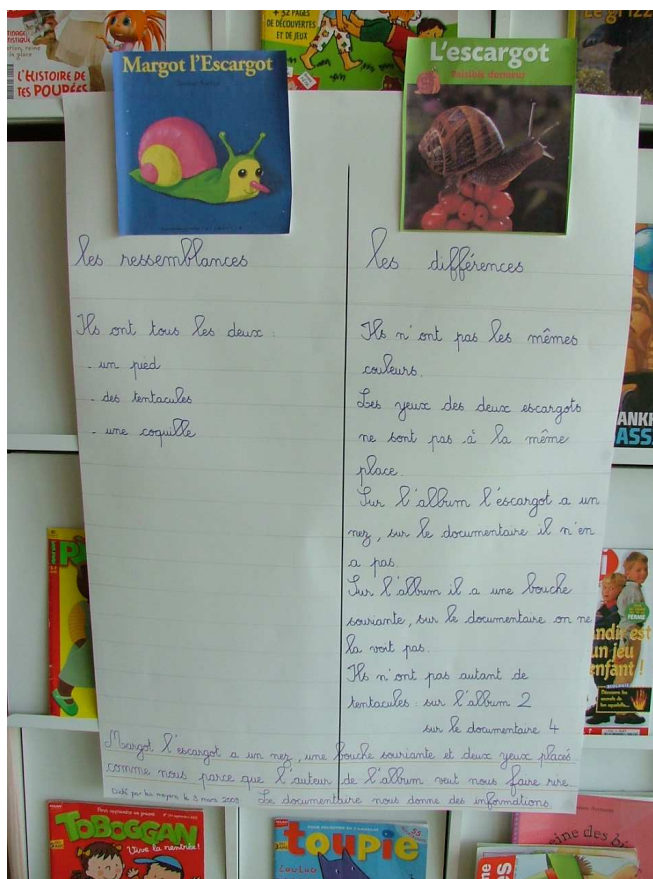 + 32 PAGES
DE DÉCOUVERTES
ET DE JEUX
L'HISTOIRE DE
TES POUPÉES
Margot l'Escargot
L'escargot
les ressemblances
Ils ont tous les deux :
- un pied
- des tentacules
- une coquille
les différences
Ils n'ont pas les mêmes
couleurs.
Les yeux des deux escargots
ne sont pas à la même
place.
Sur l'album l'escargot a un
nez, sur le documentaire il n'en
a pas.
Sur l'album il a une bouche
souriante, sur le documentaire on ne
la voit pas.
Ils n'ont pas autant de
tentacules : sur l'album 2
sur le documentaire 4
Margot l'escargot a un nez, une bouche souriante et deux yeux placés
comme nous parce que l'auteur de l'album veut nous faire rire.
Dicté par les moyens le 3 mars 2009. Le documentaire nous donne des informations.
un jeu
enfant !
TOBOGGAN
Vive la rentrée !
toupie